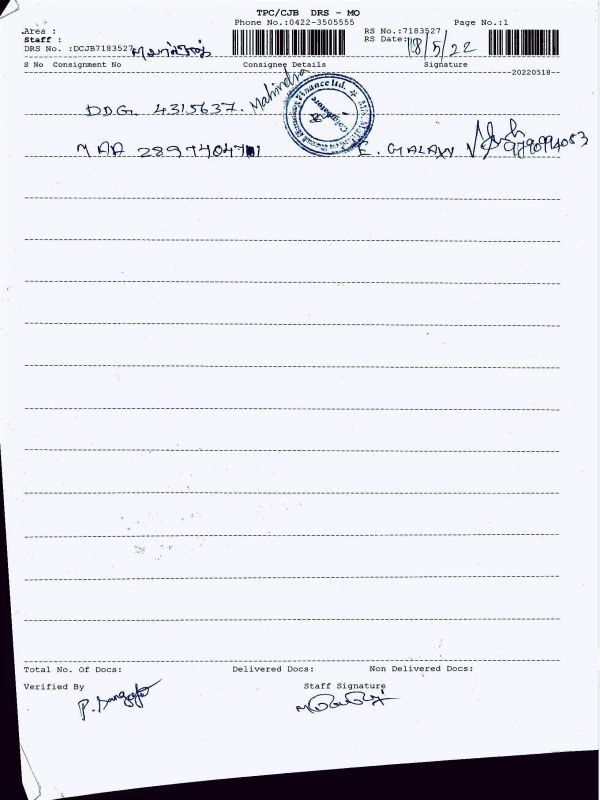 TPC/CJB DRS - MO
Phone No.:0422-3505555 Page No.:1
Area :
RS No.:7183527
Staff :
RS Date: 18/5/22
DRS No. :DCJB7183527
S No Consignment No Consignee Details Signature
20220518
DDG. 4315637. Mahindra
MAA 2897404701 E. GALAXY
Total No. Of Docs: Delivered Docs: Non Delivered Docs:
Verified By Staff Signature